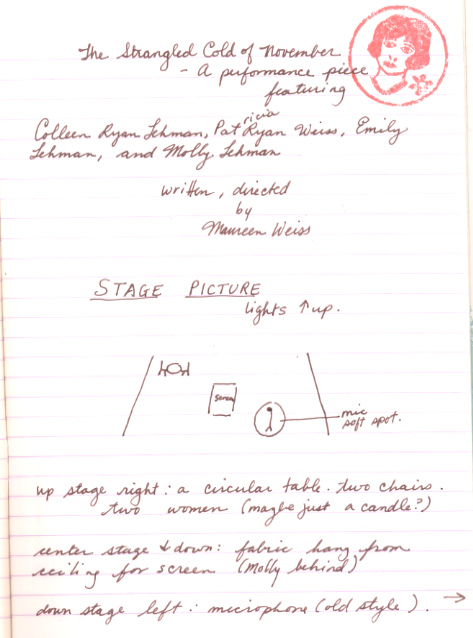 The Strangled Cold of November
- A performance piece
featuring
Colleen Ryan Lehman, Patricia Ryan Weiss, Emily
Lehman, and Molly Lehman
written, directed
by
Maureen Weiss
STAGE PICTURE
lights ↑ up.
screen
mic
soft spot.
up stage right: a circular table. two chairs.
two women (maybe just a candle?)
center stage & down: fabric hang from
ceiling for screen (Molly behind)
down stage left: microphone (old style). →